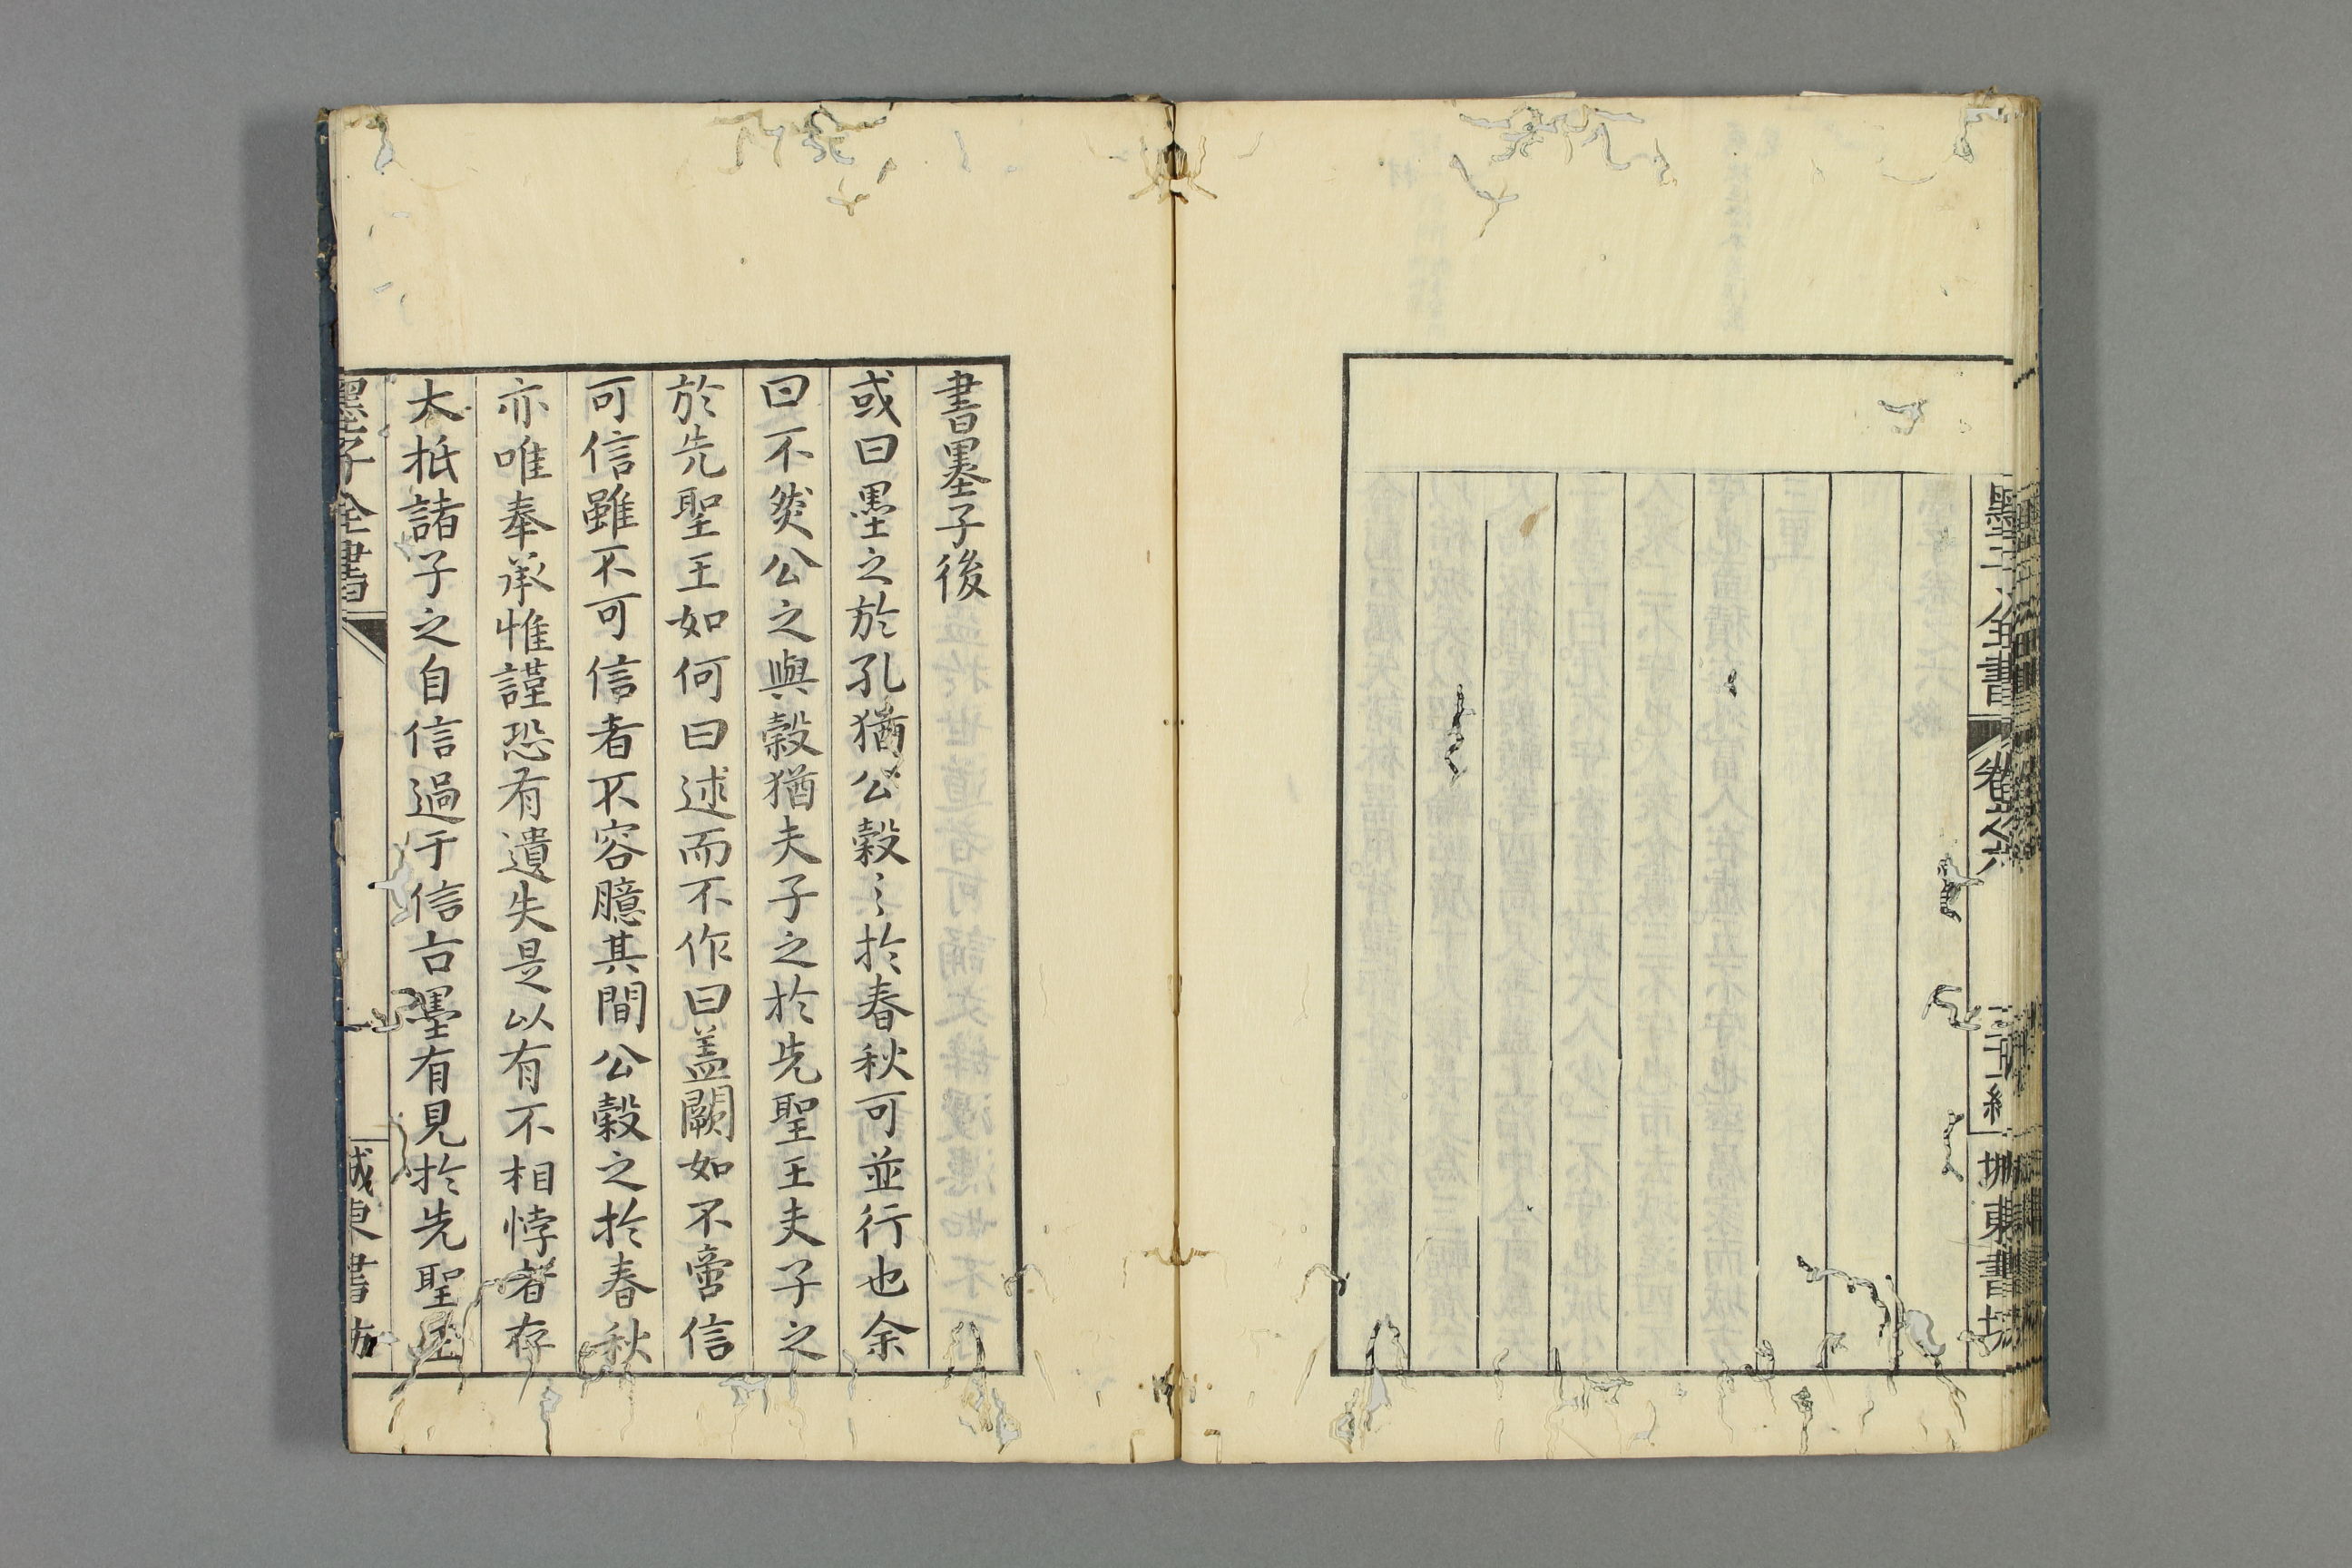 墨子全書
卷之六
三十二終
城東書坊
書墨子後
或曰墨之於孔猶公穀〻於春秋可並行也余
曰不然公之與穀猶夫子之於先聖王夫子之
於先聖王如何曰述而不作曰盖闕如不啻信
可信雖不可信者不容臆其間公穀之於春秋
亦唯奉承惟謹恐有遺失是以有不相悖者存
大抵諸子之自信過于信古墨有見於先聖王
墨子全書
一
城東書坊